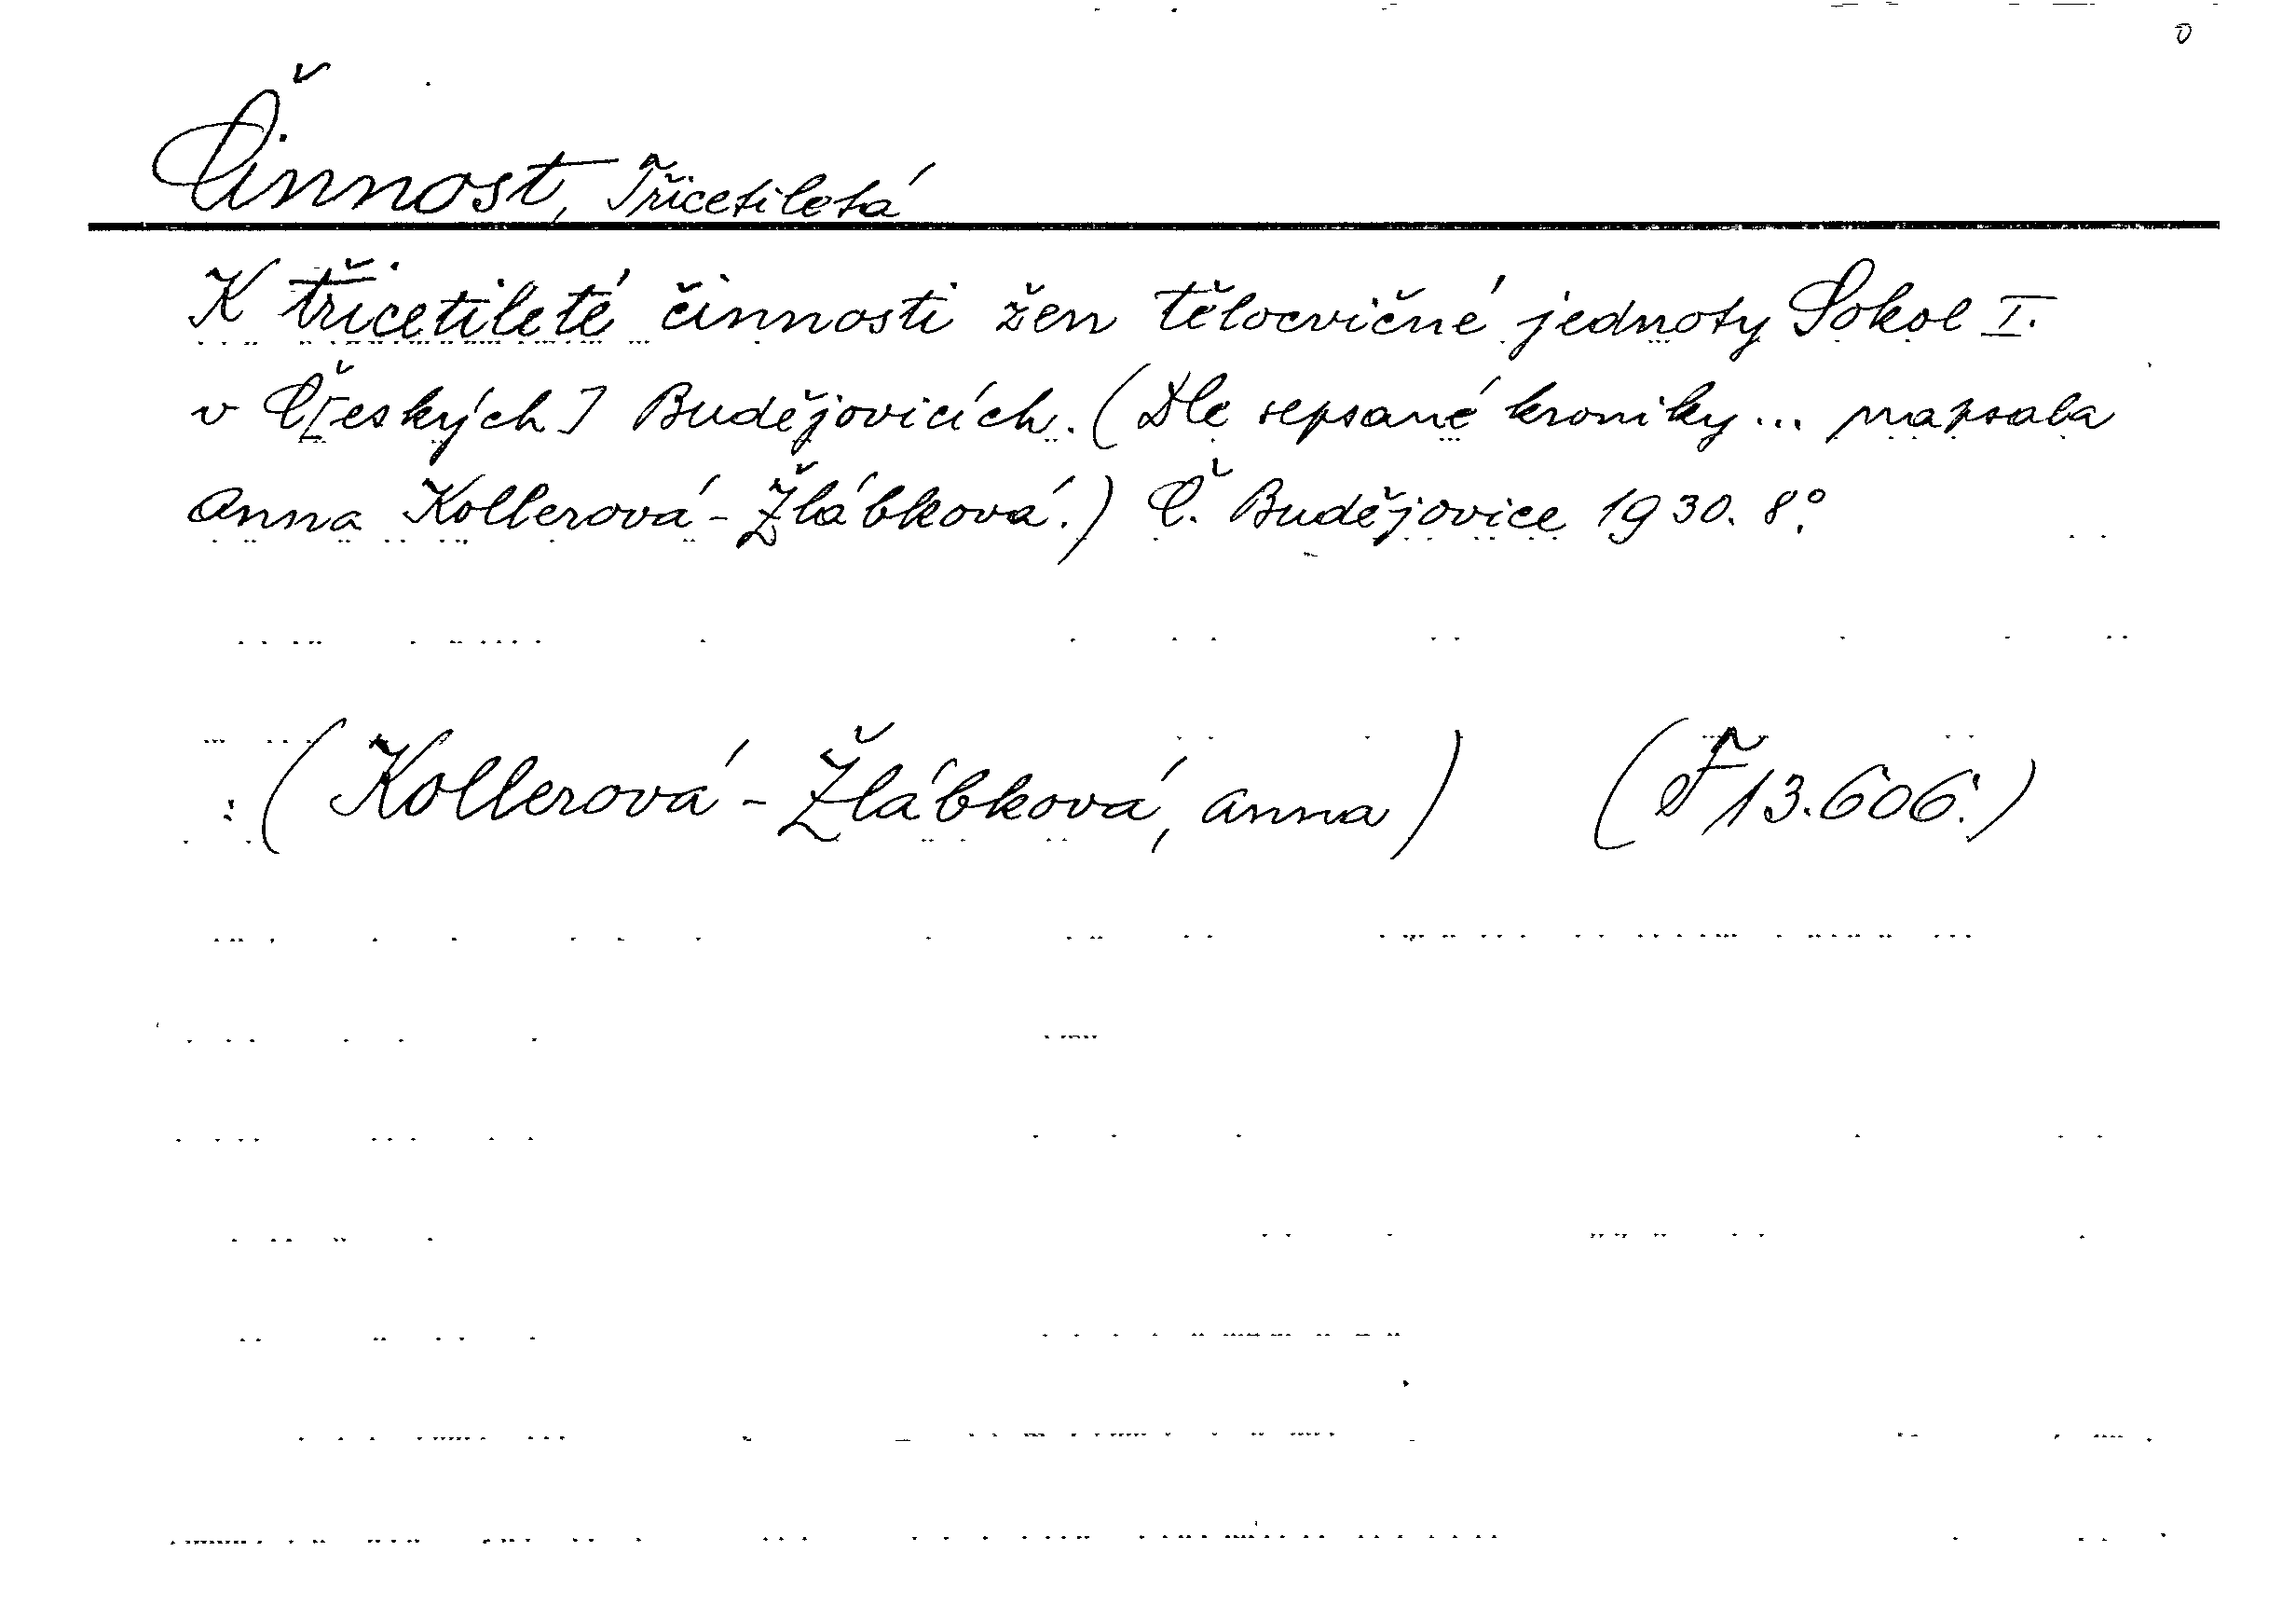 Činnost, Třicetiletá
K třicetileté činnosti žen tělocvičné jednoty Sokol I.
v Č[eských] Budějovicích. (Dle sepsané kroniky... napsala
Anna Kollerová-Žlábková.) Č. Budějovice 1930. 8°.
: (Kollerová-Žlábková, Anna) (F 13.606.)